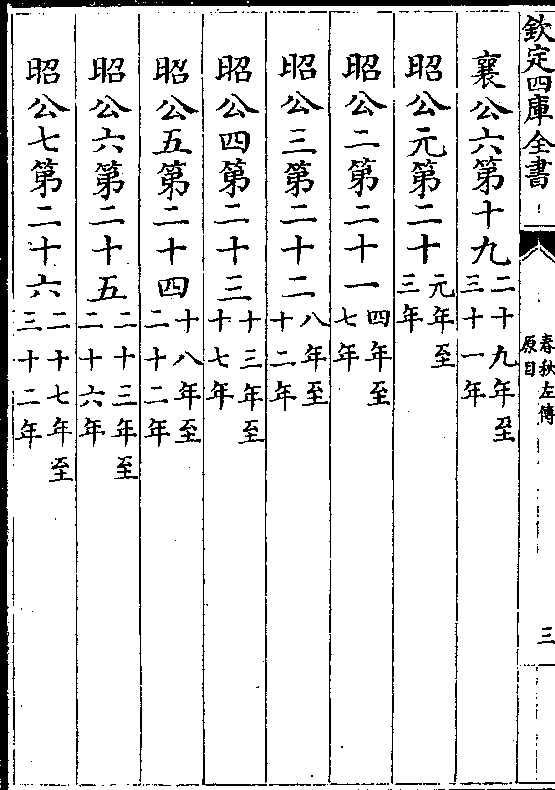 欽定四庫全書
春秋左傳
原目
三
襄公六第十九二十九年至三十一年
昭公元第二十元年至三年
昭公二第二十一四年至七年
昭公三第二十二八年至十二年
昭公四第二十三十三年至十七年
昭公五第二十四十八年至二十二年
昭公六第二十五二十三年至二十六年
昭公七第二十六二十七年至三十二年